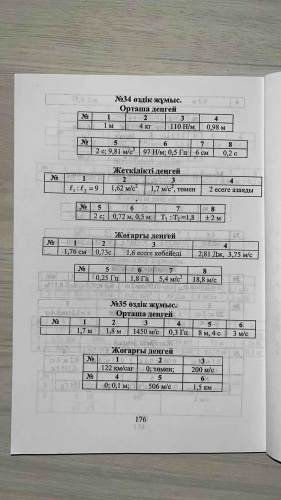 №34 өздік жұмыс.
Орташа деңгей
№ 1 2 3 4
1 м 4 кг 110 Н/м 0,98 м
№ 5 6 7 8
2 с; 9,81 м/с² 97 Н/м; 0,5 Гц 6 см 0,2 с
Жеткілікті деңгей
№ 1 2 3 4
ℓ₁ : ℓ₂ = 9 1,62 м/с² 1,7 м/с², төмен 2 есеге азаяды
№ 5 6 7 8
2 с; 0,72 м, 0,5 м T₁ : T₂=1,8 ± 2 м
Жоғарғы деңгей
№ 1 2 3 4
1,76 см 0,73с 1,6 есеге көбейеді 2,81 Дж, 3,75 м/с
№ 5 6 7 8
0,25 Гц 1,8 Гц 5,4 м/с² 18,8 м/с
№35 өздік жұмыс.
Орташа деңгей
№ 1 2 3 4 5 6
1,7 м 1,8 м 1450 м/с 0,3 Гц 8 м, 4 с 3 м/с
Жоғарғы деңгей
№ 1 2 3
122 км/сағ 0; төмен; 200 м/с
№ 4 5 6
0; 0,1 м; 506 м/с 1,5 км
176